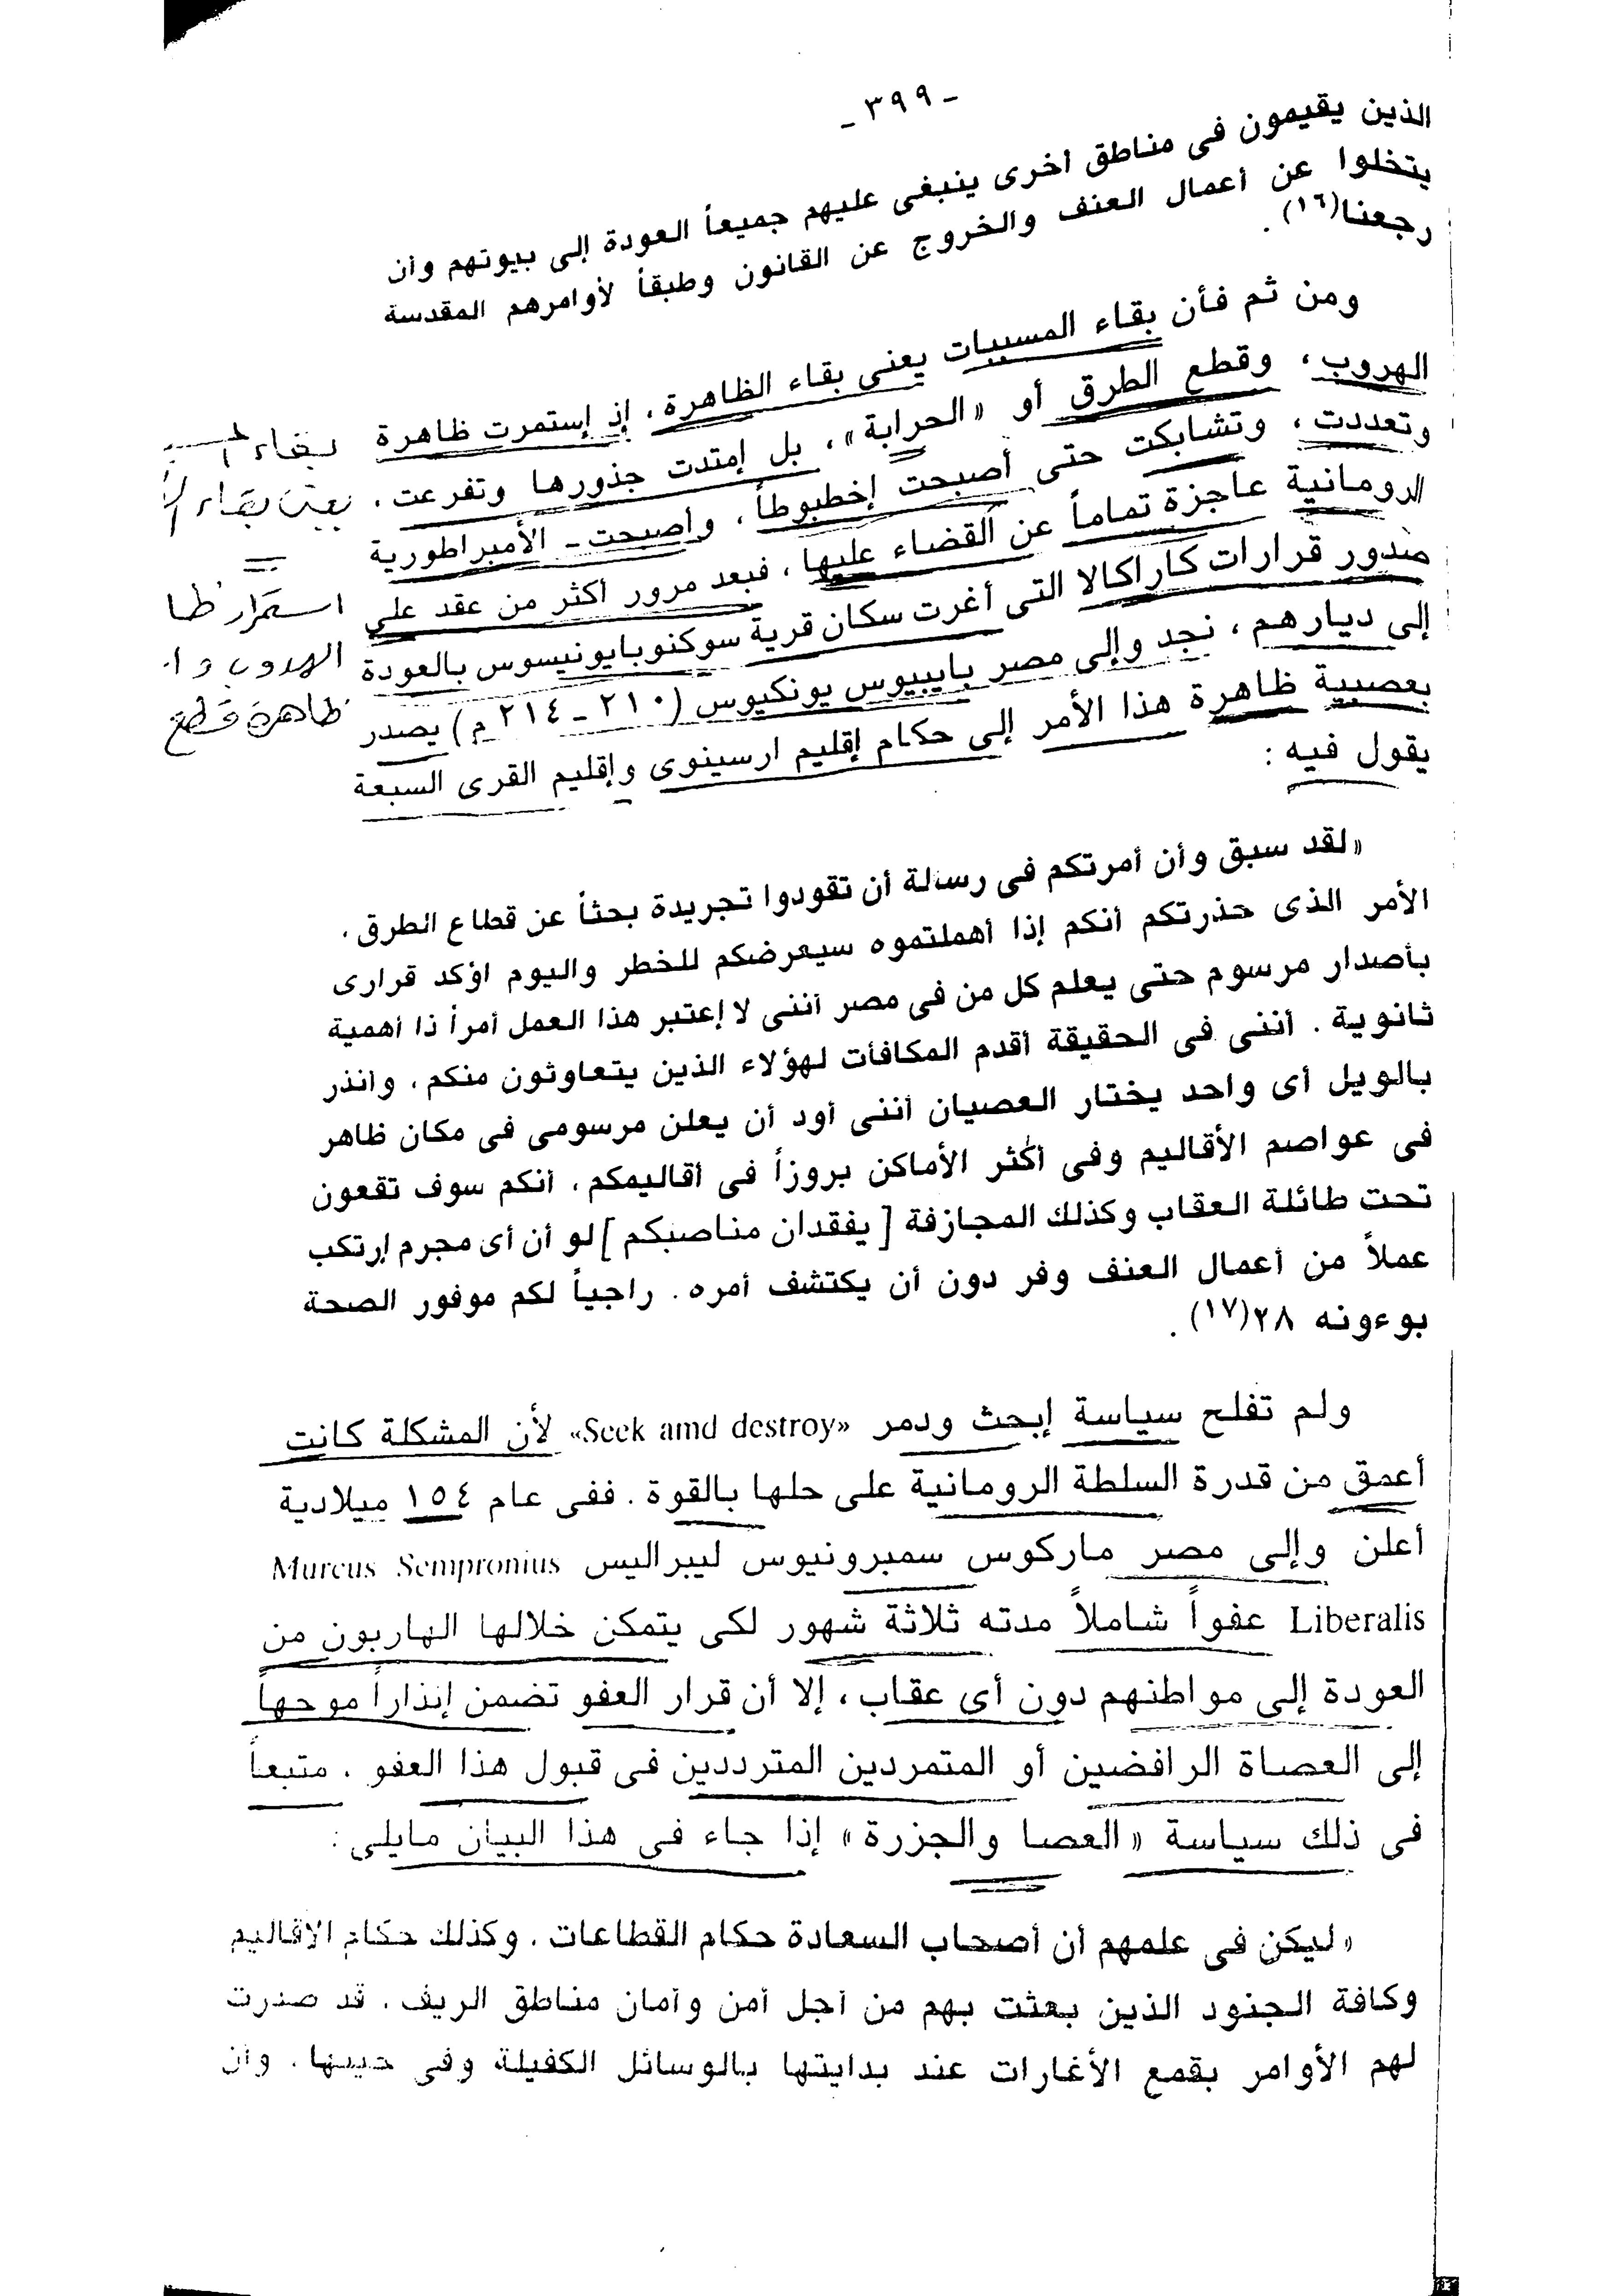 - ٣٩٩ -
الذين يقيمون فى مناطق أخرى ينبغى عليهم جميعاً العودة إلى بيوتهم وأن
يتخلوا عن أعمال العنف والخروج عن القانون وطبقاً لأوامرهم المقدسة
رجعنا(١٦) .
ومن ثم فأن بقاء المسببات يعنى بقاء الظاهرة ، إذ إستمرت ظاهرة
الهروب ، وقطع الطرق أو « الحرابة » ، بل إمتدت جذورها وتفرعت ،
وتعددت ، وتشابكت حتى أصبحت إخطبوطاً ، وأصبحت - الأمبراطورية
الرومانية عاجزة تماماً عن القضاء عليها ، فبعد مرور أكثر من عقد على
صدور قرارات كاراكالا التى أغرت سكان قرية سوكنوبايونيسوس بالعودة
إلى ديارهم ، نجد وإلى مصر بايبيوس يونكيوس (٢١٠ - ٢١٤ م) يصدر
بعصبية ظاهرة هذا الأمر إلى حكام إقليم ارسينوى وإقليم القرى السبعة
يقول فيه :
بقاء
يعنى بقاء
استمرار ظا
الهروب وا
ظاهرة قطع
« لقد سبق وأن أمرتكم فى رسالة أن تقودوا تجريدة بحثاً عن قطاع الطرق ،
الأمر الذى حذرتكم أنكم إذا أهملتموه سيعرضكم للخطر واليوم اؤكد قرارى
بأصدار مرسوم حتى يعلم كل من فى مصر أننى لا إعتبر هذا العمل أمراً ذا أهمية
ثانوية . أننى فى الحقيقة أقدم المكافأت لهؤلاء الذين يتعاوثون منكم ، وأنذر
بالويل أى واحد يختار العصيان أننى أود أن يعلن مرسومى فى مكان ظاهر
فى عواصم الأقاليم وفى أكثر الأماكن بروزاً فى أقاليمكم ، أنكم سوف تقعون
تحت طائلة العقاب وكذلك المجازفة [ يفقدان مناصبكم ] لو أن أى مجرم إرتكب
عملاً من أعمال العنف وفر دون أن يكتشف أمره . راجياً لكم موفور الصحة
بوءونه ٢٨(١٧) .
ولم تفلح سياسة إبحث ودمر «Seek amd destroy» لأن المشكلة كانت
أعمق من قدرة السلطة الرومانية على حلها بالقوة . ففى عام ١٥٤ ميلادية
أعلن وإلى مصر ماركوس سمبرونيوس ليبراليس Murcus Sempronius
Liberalis عفواً شاملاً مدته ثلاثة شهور لكى يتمكن خلالها الهاربون من
العودة إلى مواطنهم دون أى عقاب ، إلا أن قرار العفو تضمن إنذاراً موجهاً
إلى العصاة الرافضين أو المتمردين المترددين فى قبول هذا العفو . متبعاً
فى ذلك سياسة « العصا والجزرة » إذا جاء فى هذا البيان مايلى :
« ليكن فى علمهم أن أصحاب السعادة حكام القطاعات . وكذلك حكام الاقاليم
وكافة الجنود الذين بعثت بهم من أجل أمن وأمان مناطق الريف . قد صدرت
لهم الأوامر بقمع الأغارات عند بدايتها بالوسائل الكفيلة وفى حينها . وأن